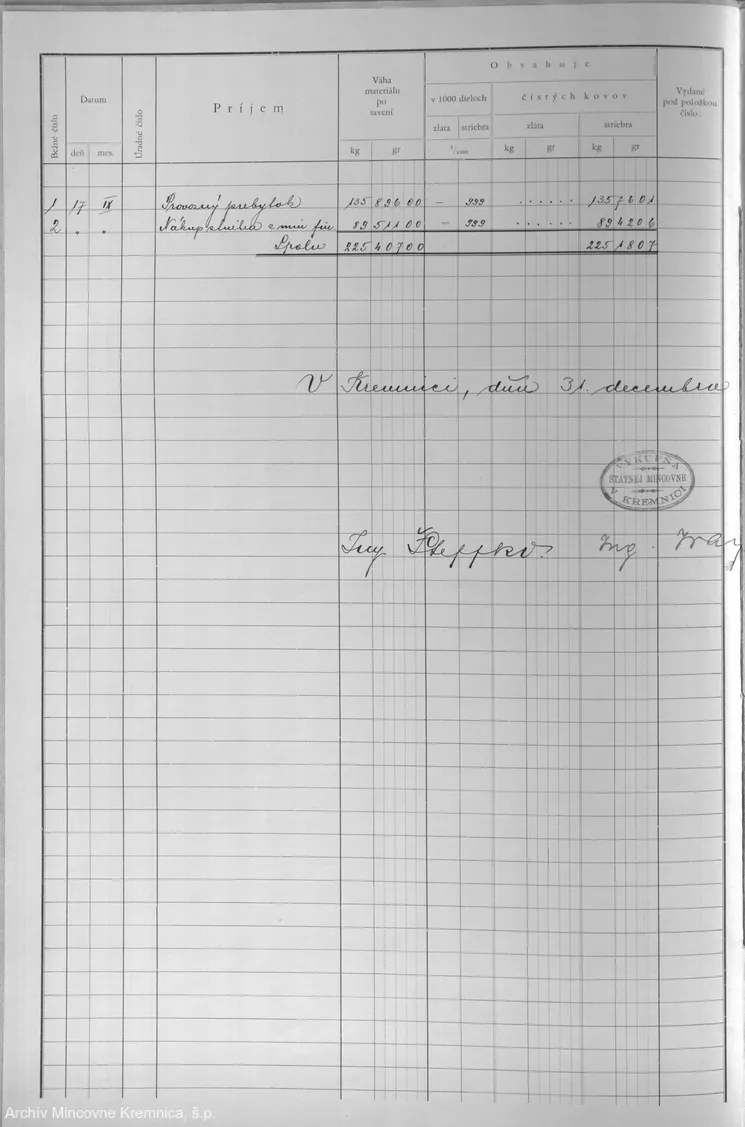 Obsahuje
Bežné číslo
Datum
Úradné číslo
Príjem
Váha
materiálu
po
tavení
v 1000 dieloch
čistých kovov
Vydané
pod položkou
číslo:
zlata striebra
zlata
striebra
deň mes.
kg gr
1/1000
kg gr
kg gr
1 17 IX Provozný prebytok 135 896 00 — 999 ...... 135 7601
2 " " Nákup striebra z min fin. 89 511 00 — 999 ...... 89 4206
Spolu 225 407 00 225 1807
V Kremnici, dňa 31. decembra
VÝKUPŇA
ŠTÁTNEJ MINCOVNE
V KREMNICI
Ing. Ing.
Archív Mincovne Kremnica, š.p.